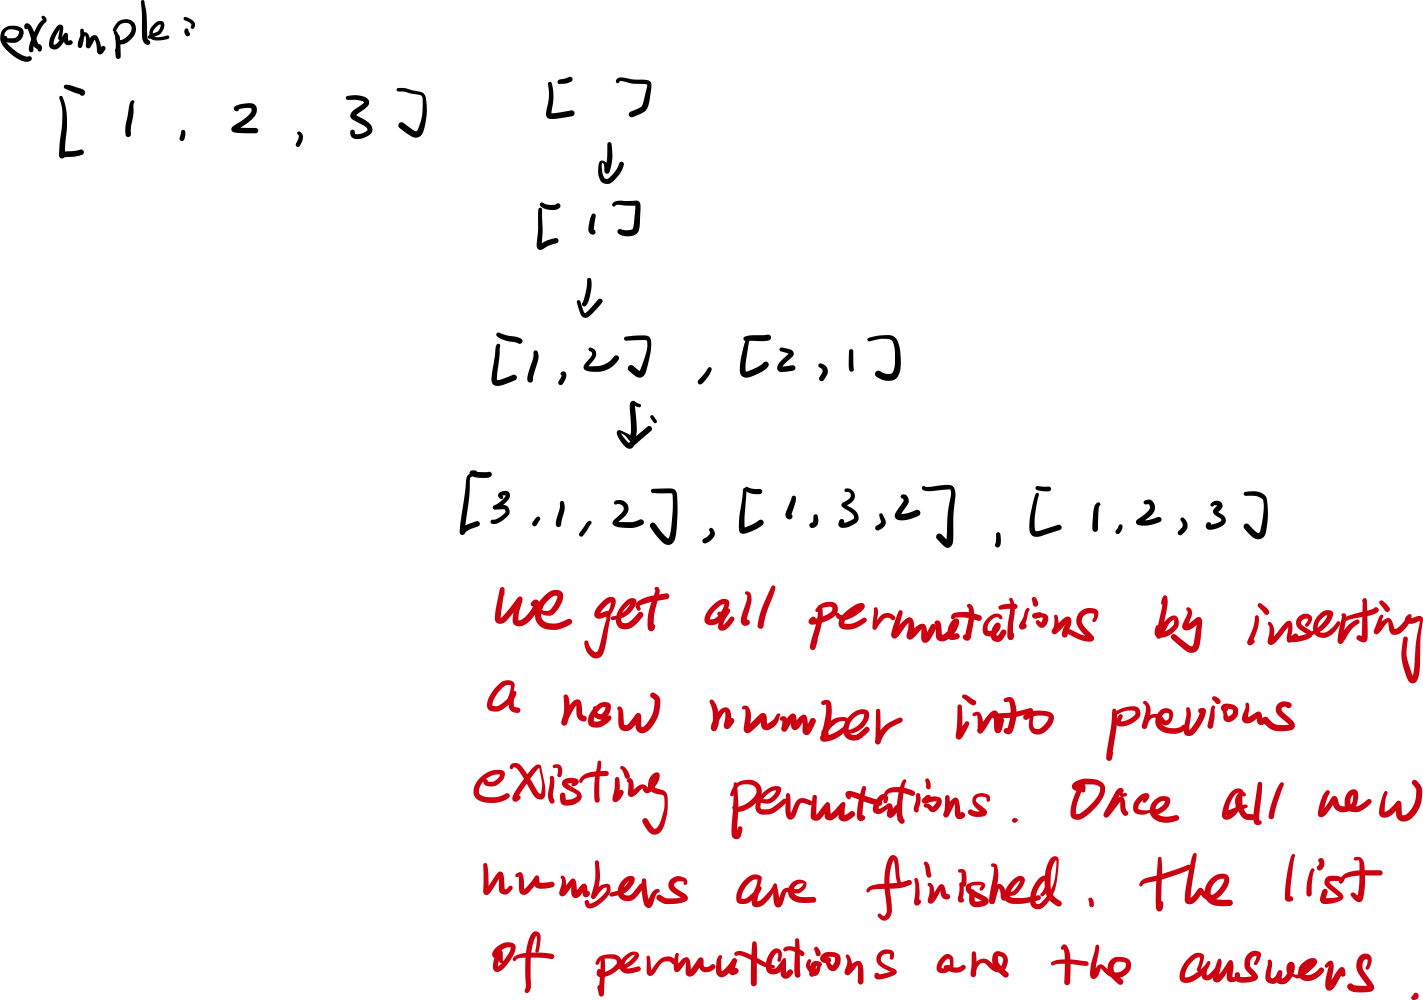 example:
[ 1 , 2 , 3 ]
[ ]
↓
[ 1 ]
↓
[1, 2] , [2, 1]
↓
[3, 1, 2] , [1, 3, 2] , [1, 2, 3]
we get all permutations by inserting
a new number into previous
existing permutations. Once all new
numbers are finished. the list
of permutations are the answers.